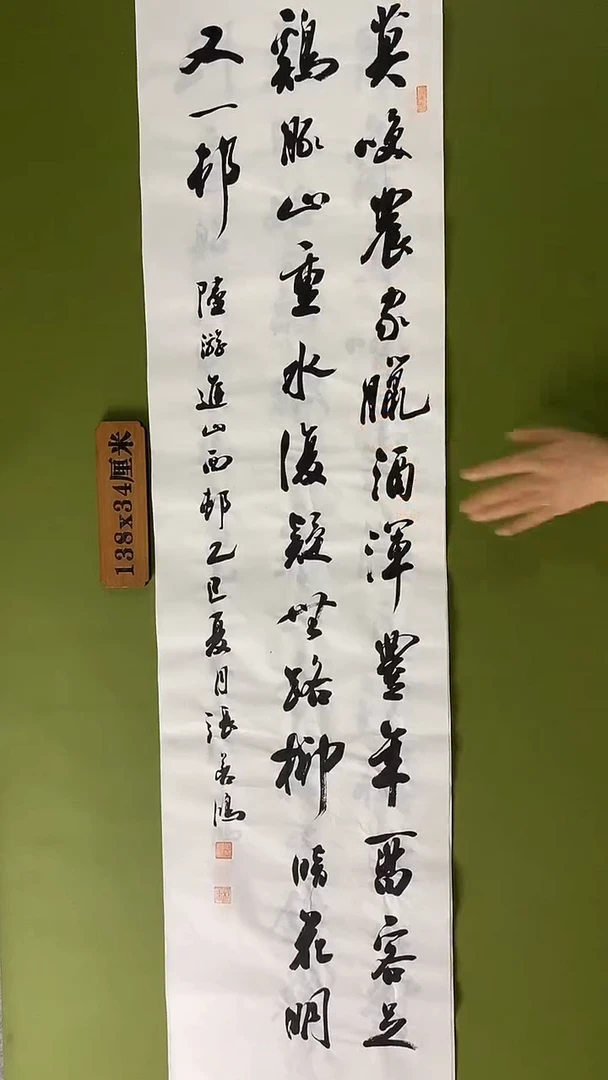 莫咲農家臘酒渾豐年留客足
鷄豚山重水復疑無路柳暗花明
又一邨
陸游遊山西邨乙巳夏月張若鴻
138x34厘米